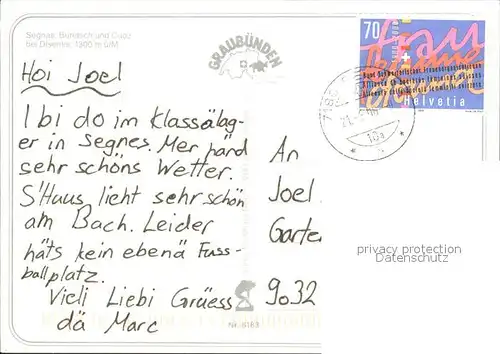 Segnas, Bündoch und Cuoz
bei Disentis, 1300 m ü/M
GRAUBÜNDEN
70
Helvetia
Hoi Joel
I bi do im Klassälag-
er in Segnes. Mer händ
sehr schöns Wetter.
S'Huus licht sehr schön
am Bach. Leider
häts kein ebenä Fuss-
ballplatz.
Vieli Liebi Grüess
dä Marc
An
Joel
Garte
9032
privacy protection
Datenschutz